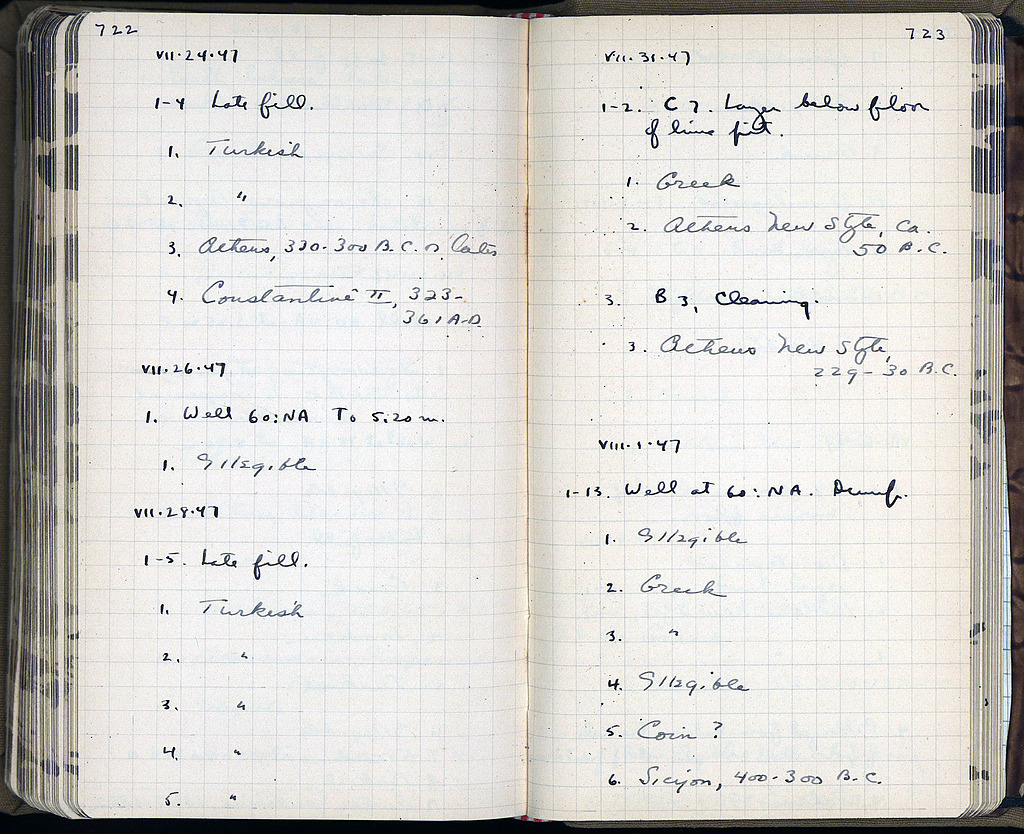 722
VII·24·47
1-4 Late fill.
1. Turkish
2. "
3. Athens, 330-300 B.C. or later
4. Constantine II, 323-
361 A.D.
VII·26·47
1. Well 60:NA To 5.20 m.
1. Illegible
VII·29·47
1-5. Late fill.
1. Turkish
2. "
3. "
4. "
5. "
723
VII·31·47
1-2. C 7. Layer below floor
of lime pit.
1. Greek
2. Athens New Style, ca.
50 B.C.
3. B 3, Cleaning.
3. Athens New Style,
229-30 B.C.
VIII·1·47
1-13. Well at 60:NA. Dump.
1. Illegible
2. Greek
3. "
4. Illegible
5. Coin?
6. Sicyon, 400-300 B.C.